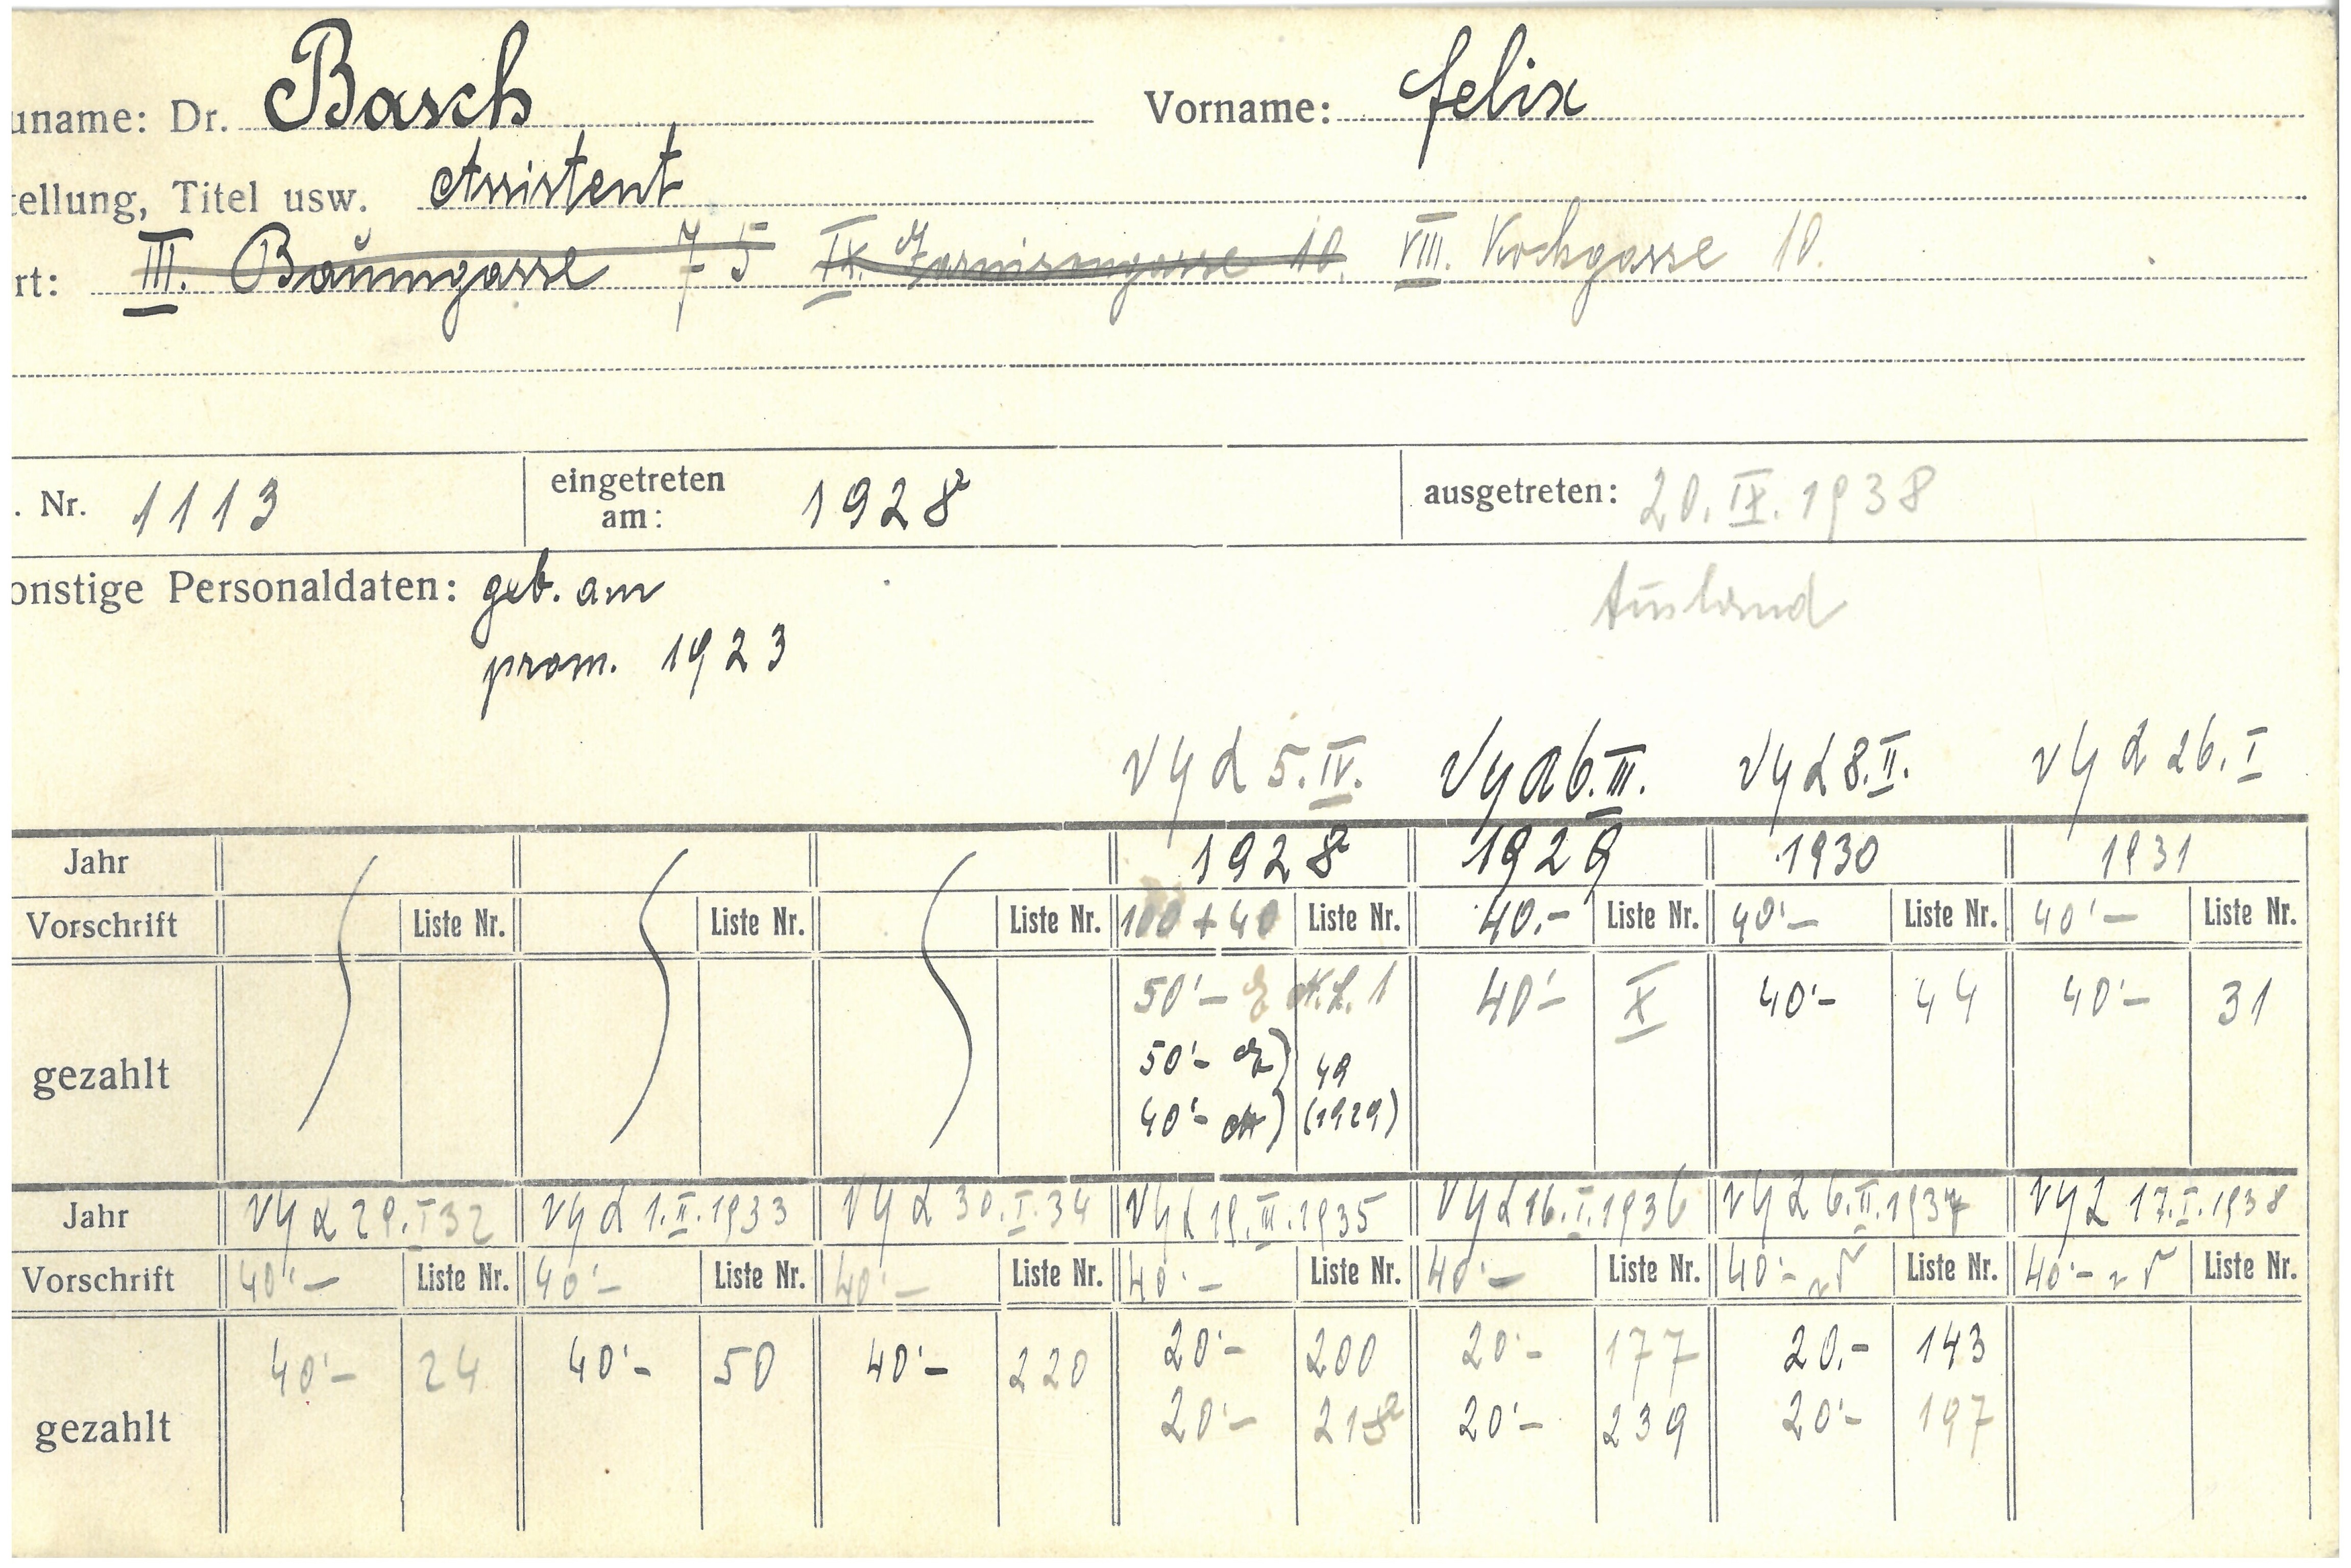 uname: Dr. Basch Vorname: Felix
tellung, Titel usw. Assistent
rt: III. Baumgasse 75 IX. Garnisongasse 10. VIII. Kochgasse 10.
. Nr. 1113 eingetreten am: 1928 ausgetreten: 20.IX.1938
onstige Personaldaten: geb. am Ausland
prom. 1923
5.IV. 6.III. 8.II. 26.I
Jahr 1928 1929 1930 1931
Vorschrift Liste Nr. Liste Nr. Liste Nr. 100+40 Liste Nr. 40.- Liste Nr. 40'- Liste Nr. 40'- Liste Nr.
50'- 1 40'- X 40'- 44 40'- 31
gezahlt 50'- 49
40'- (1929)
Jahr 29.I 32 1.II.1933 30.I.34 19.III.1935 16.I.1936 6.II.1937 17.I.1938
Vorschrift 40'- Liste Nr. 40'- Liste Nr. 40'- Liste Nr. 40'- Liste Nr. 40'- Liste Nr. 40'- Liste Nr. 40'- Liste Nr.
40'- 24 40'- 50 40'- 220 20'- 200 20'- 177 20.- 143
gezahlt 20'- 20'- 239 20'- 197